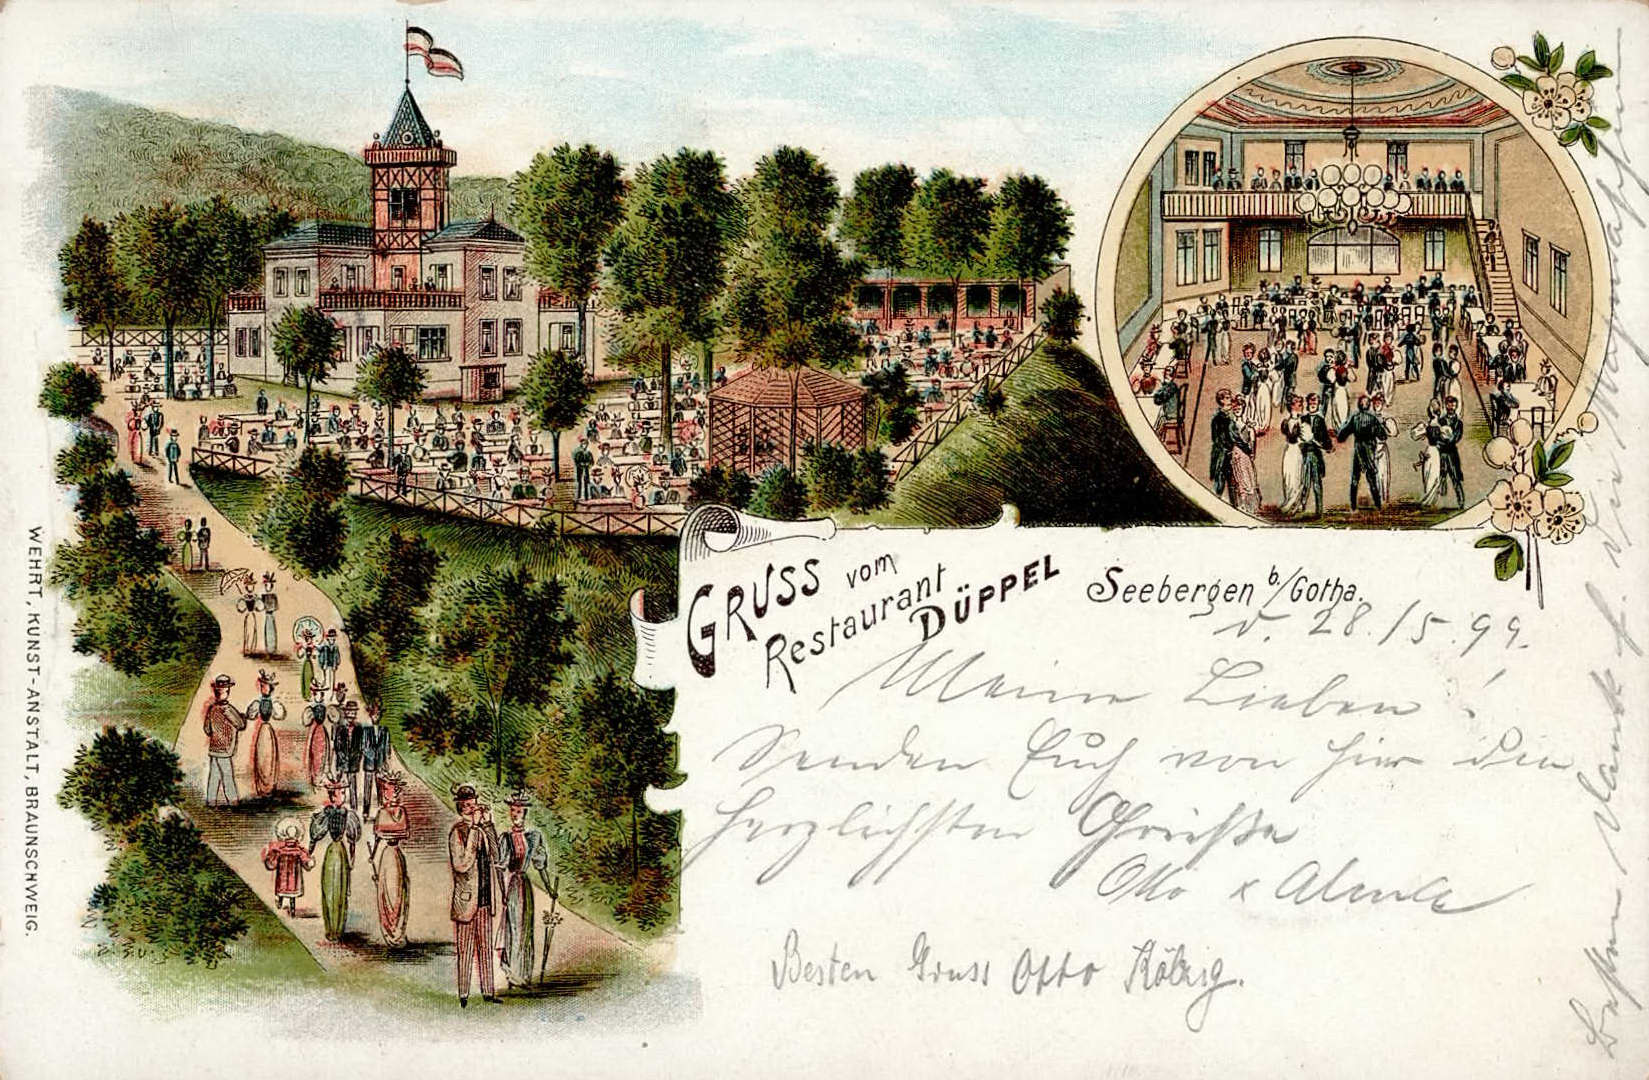 GRUSS vom
Restaurant
DÜPPEL
Seebergen b./Gotha.
d. 28./5.99.
Meine Lieben!
Senden Euch von hier die
herzlichsten Grüße
Otto
Besten Gruss Otto
WEHRT, KUNST-ANSTALT, BRAUNSCHWEIG.